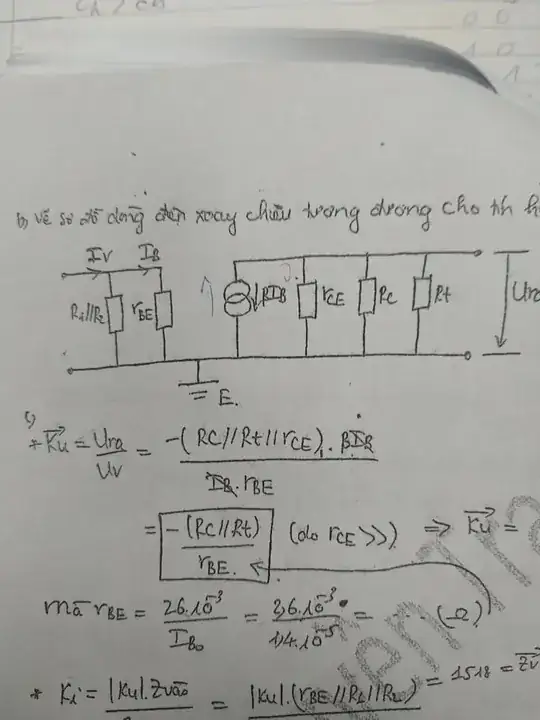 b, vẽ sơ đồ dòng điện xoay chiều tương đương cho th h
Iv IB
R1//R2 rBE βIB rCE Rc Rt Ura
E.
c,
* Ku = Ura/Uv = -(RC//Rt//rCE).βIB / IB.rBE
= -(RC//Rt)/rBE. (do rCE >>) => Ku =
mà rBE = 26.10^-3/IBo = 2,6.10^-3/1,4.10^-5 = (Ω)
* Ki = |Ku|.Zvào = |Ku|.(rBE//R1//R2) = 1518 = Zv